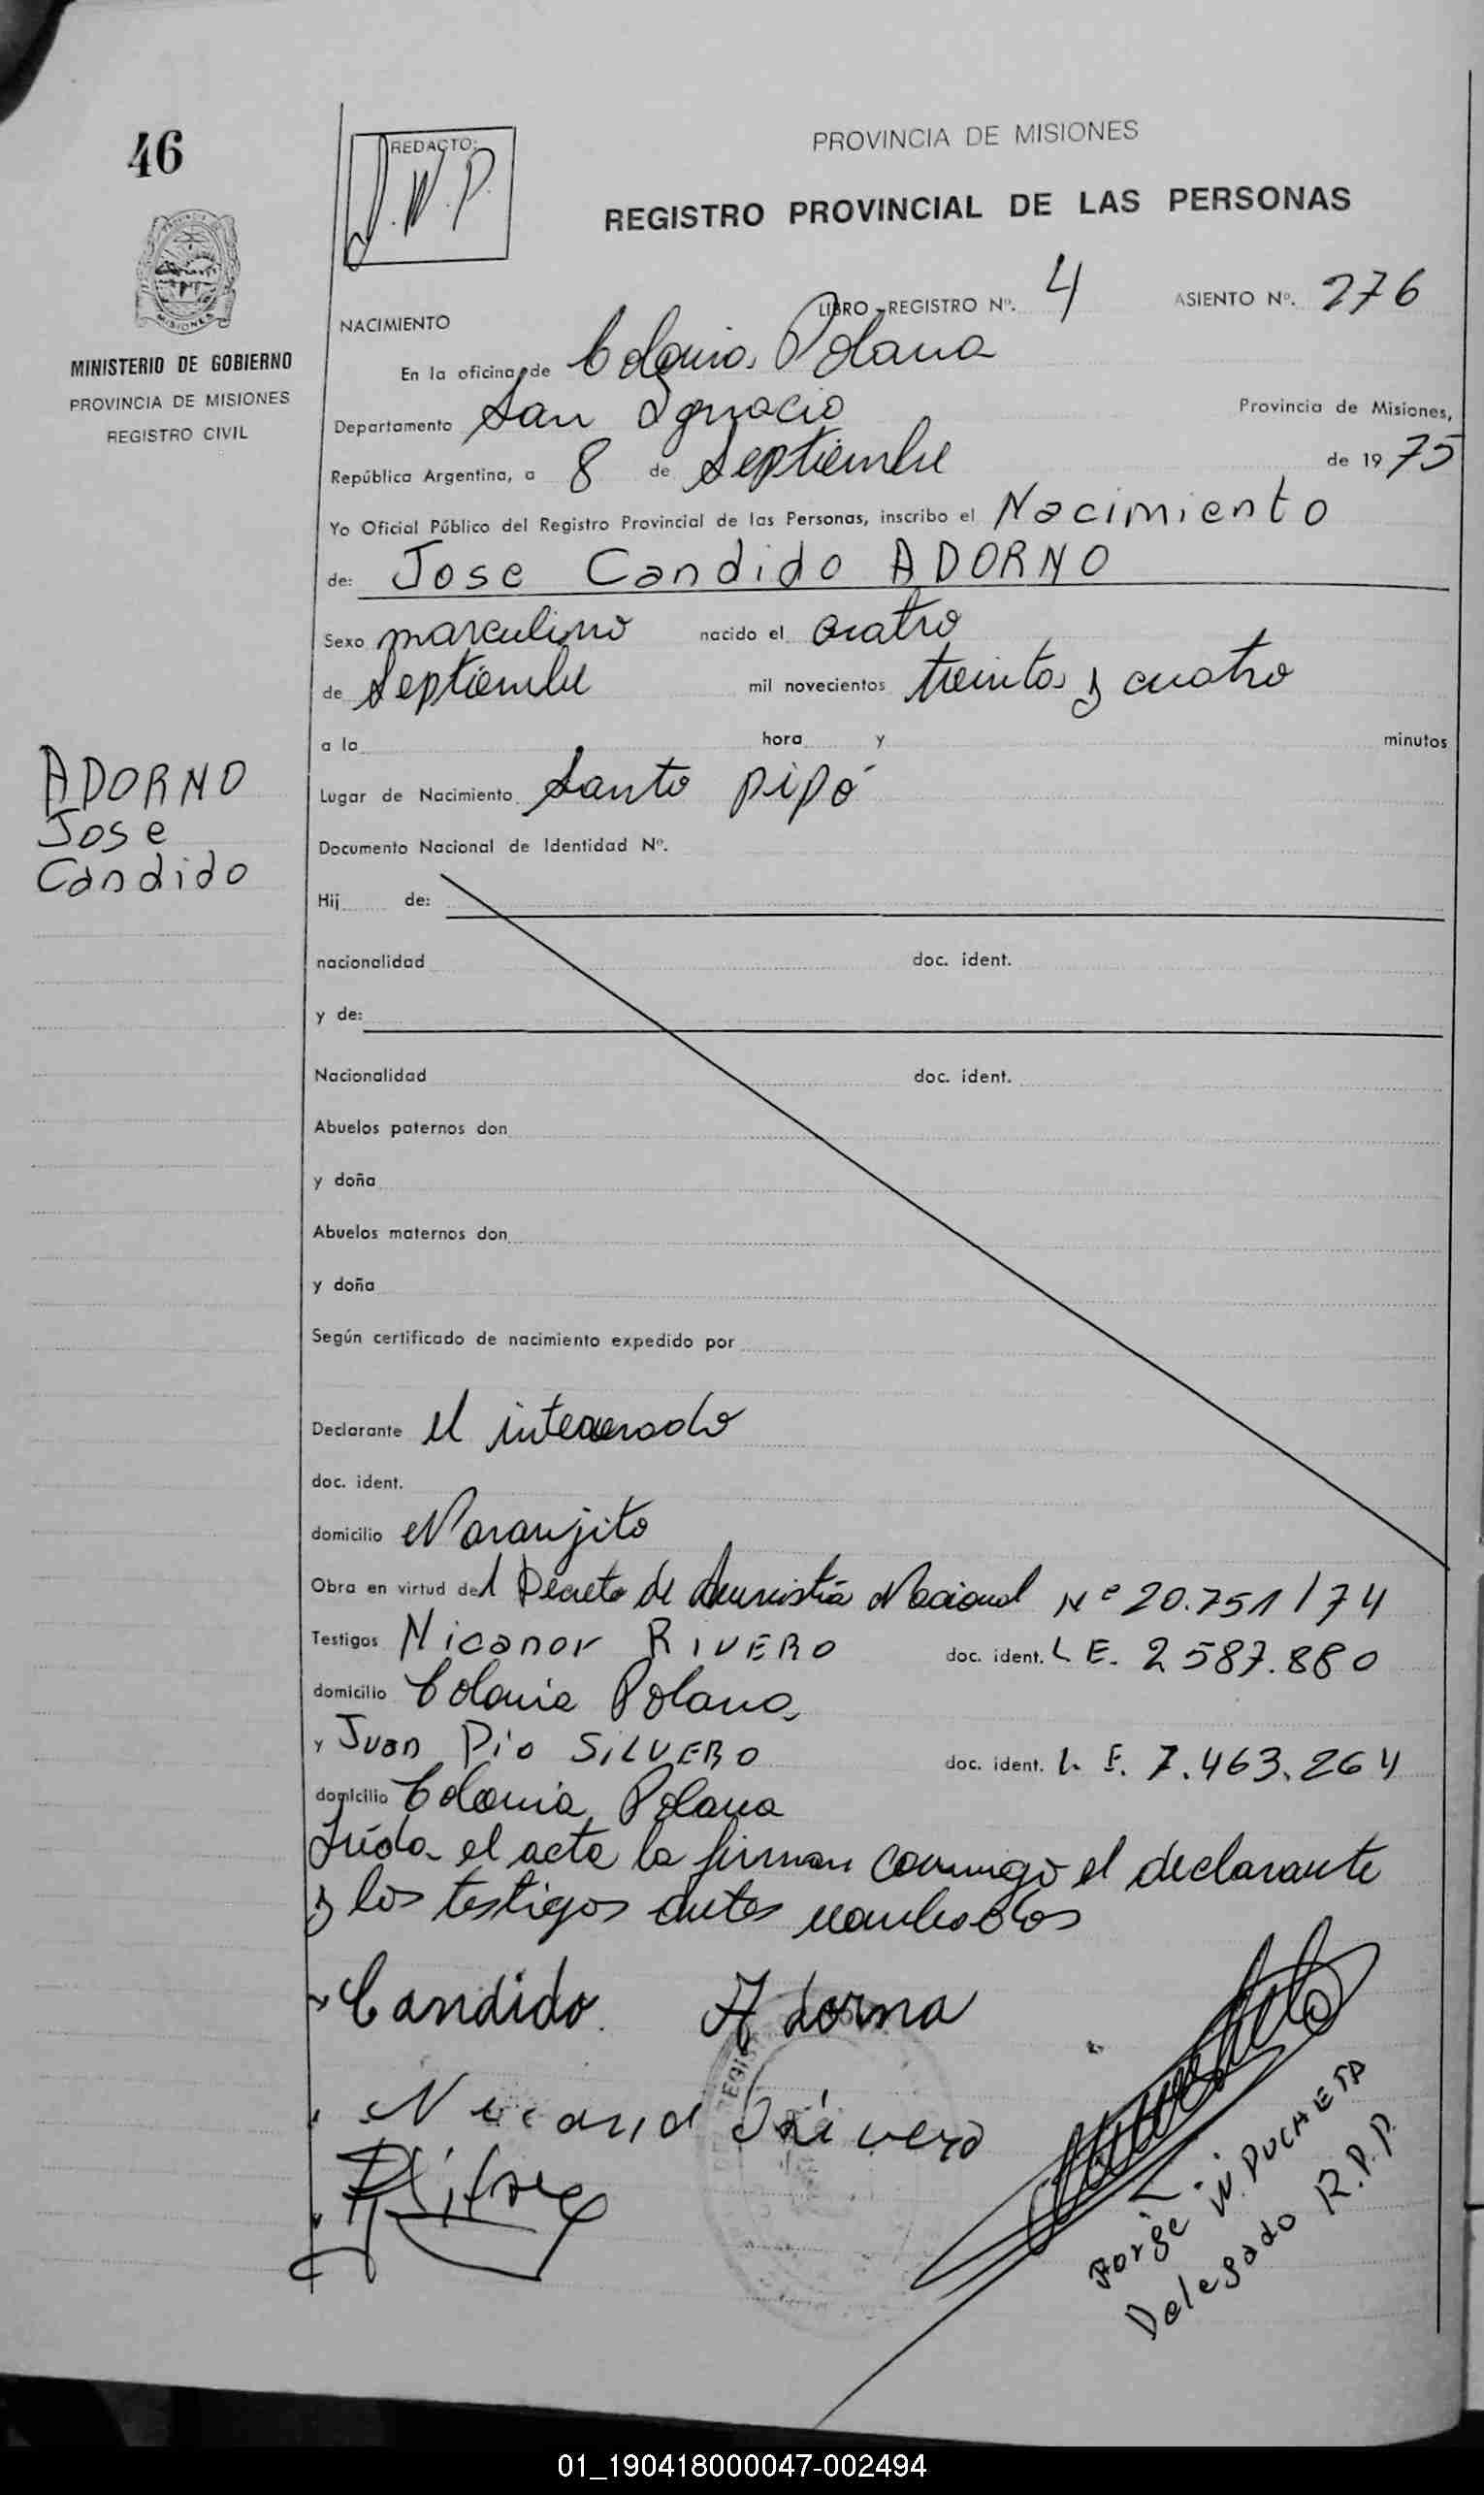 46
REDACTO:
J.W.P.
PROVINCIA DE MISIONES
REGISTRO PROVINCIAL DE LAS PERSONAS
MISIONES
MINISTERIO DE GOBIERNO
PROVINCIA DE MISIONES
REGISTRO CIVIL
LIBRO-REGISTRO Nº. 4 ASIENTO Nº. 276
NACIMIENTO
En la oficina de Colonia Polana
Departamento San Ignacio Provincia de Misiones,
República Argentina, a 8 de Septiembre de 19 75
Yo Oficial Público del Registro Provincial de las Personas, inscribo el Nacimiento
de: Jose Candido ADORNO
Sexo masculino nacido el cuatro
de Septiembre mil novecientos treinta y cuatro
a la hora y minutos
ADORNO
Jose
Candido
Lugar de Nacimiento Santo pipó
Documento Nacional de Identidad Nº.
Hij de:
nacionalidad doc. ident.
y de:
Nacionalidad doc. ident.
Abuelos paternos don
y doña
Abuelos maternos don
y doña
Según certificado de nacimiento expedido por
Declarante el interesado
doc. ident.
domicilio Naranjito
Obra en virtud del Decreto de Amnistia Nacional Nº 20.751/74
Testigos Nicanor RIVERO doc. ident. L E. 2587.880
domicilio Colonia Polana
y Juan Pio SILVERO doc. ident. L. E. 7.463.264
domicilio Colonia Polana
Leida el acta la firman conmigo el declarante
y los testigos antes nombrados
Candido Adorno
REGIST
Jorge W. DUCHETA
Delegado R.P.P.
01_190418000047-002494